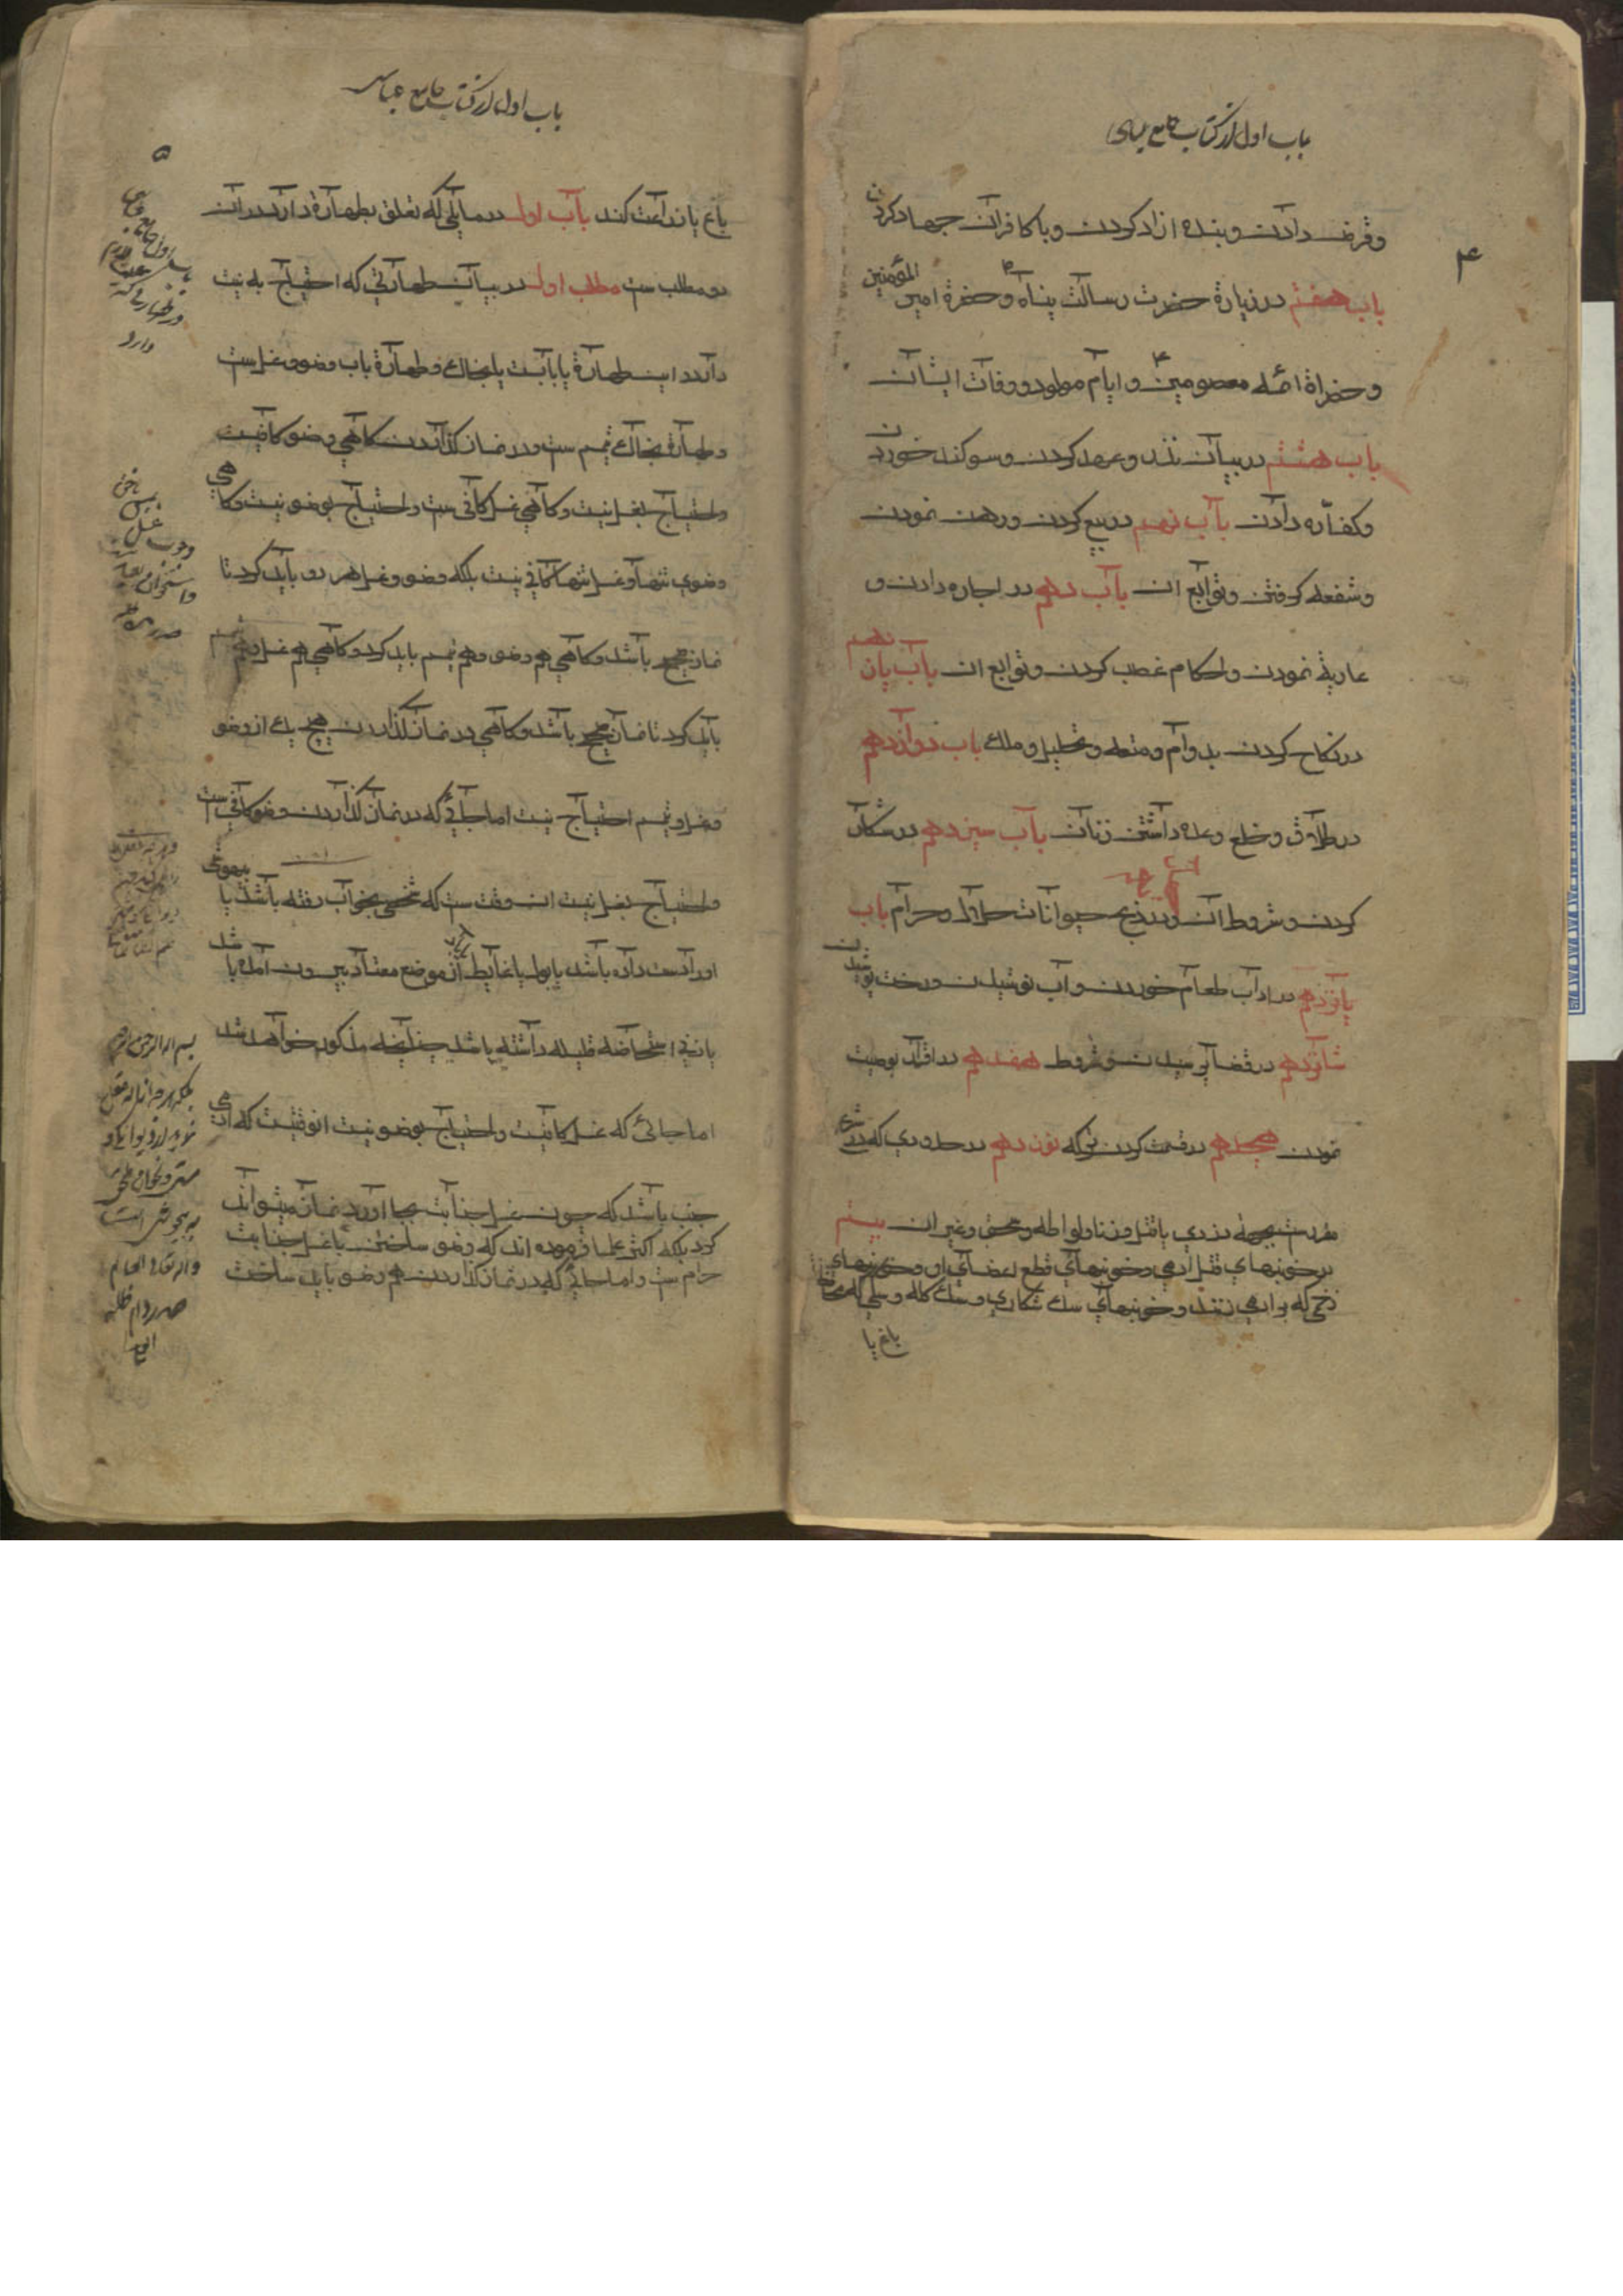 باب اول از کتاب جامع عباسی
۴
وقرض دادن وبنده ازاد کردن وبا کافران جهاد کردن
باب هفتم در زیارة حضرت رسالت پناه و حضرة امیر المؤمنین
وحضراة ائمه معصومین وایام مولود ووفات ایشان
باب هشتم در بیان نذر وعهد کردن وسوکند خوردن
وکفاره دادن باب نهم در بیع کردن ورهن نمودن
وشفعه کرفتن وتوابع ان باب دهم در اجاره دادن و
عاریة نمودن واحکام غصب کردن وتوابع ان باب یازدهم
در نکاح کردن بدوام ومتعه وتحلیل وملک باب دوازدهم
در طلاق وخلع وعده داشتن زنان باب سیزدهم در شکار
کردن وشروط ان ودر ذبح حیوانات حلال وحرام باب
پانزدهم در اداب طعام خوردن واب نوشیدن ورخت پوشیدن
شانزدهم در قضا پرسیدن وشروط هفدهم در اقرار بوصیت
نمودن هجدهم در قسمت کردن ترکه نوزدهم در حدودی که در شرع
مقررست بجهة دزدی یا قتل وزنا ولواطه وسحق وغیر ان بیستم
در خونبهای قتل ادمی وخونبهای قطع اعضای او وخونبهای
زخمی که بر ادمی زنند وخونبهای سک شکاری وسک کله وسکی که محافظة
باغ یا
باب اول از کتاب جامع عباسی
۵
باغ یا زراعت کند باب اول در مسایلی که تعلق بطهارة دارد ودران
دو مطلب ست مطلب اول در بیان طهارتی که احتیاج به نیت
دارد این طهارة یا بابست یا بخاک وطهارة باب وضو وغسل ست
وطهارة بخاک تیمم ست ودر نماز کذاردن کاهی وضو کافیست
واحتیاج بغسل نیست وکاهی غسل کافی ست واحتیاج بوضو نیست وکاهی
وضوی تنها وغسل تنها کافی نیست بلکه وضو وغسل هر دو باید کرد تا
نماز صحیح باشد وکاهی هم وضو وهم تیمم باید کرد وکاهی هم غسل وهم تیمم
باید کرد تا نماز صحیح باشد وکاهی در نماز کذاردن هیچ یک از وضو
وغسل وتیمم احتیاج نیست اما جائی که در نماز کذاردن وضو کافی ست
واحتیاج بغسل نیست ان وقت ست که شخصی بخواب رفته باشد یا بیهوشی
اورا دست داده باشد یا بول یا غایط از موضع معتاد بیرون امده یا شد
یا زنی استحاضه قلیله داشته باشد چنانچه مذکور خواهد شد
اما جائی که غسل کافیست واحتیاج بوضو نیست انوقتیست که ادمی
جنب باشد که چون غسل جنابت بجا اورد نماز میتواند
کرد بلکه اکثر علما فرموده اند که وضو ساختن با غسل جنابت
حرام ست واما جائی که در نماز کذاردن هم وضو باید ساخت
باب اول جامع عباسی
در طهارتی که
دارد
بسم الله الرحمن الرحیم